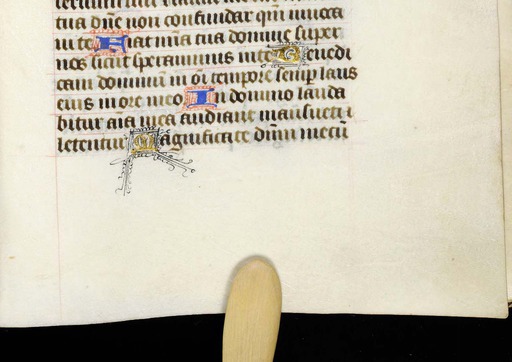 tua dñe non confundar qm̃ inuoca
ui te Fiat mīa tua domine super
nos sicut sperauimus in te Benedi
cam dominum in õi tempore semp̃ laus
eius in ore meo In domino lauda
bitur aīa mea audiant mansueti ⁊
letentur Magnificate dñm mecū